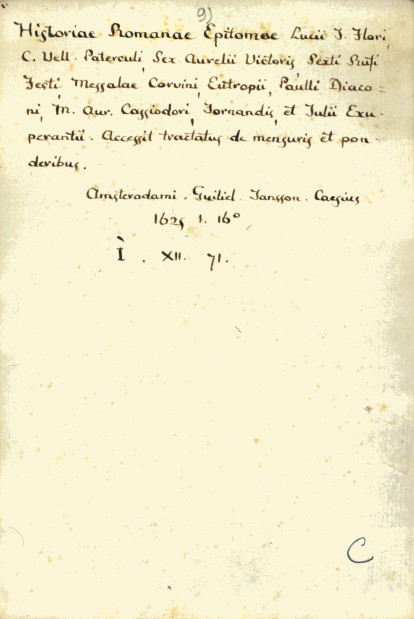 91
Historiae Romanae Epitomae Lucii J. Flori,
C. Vell. Paterculi, Sex. Aurelii Victoris, Sexti Rufi
Festi, Messalae Corvini, Eutropii, Paulli Diaco=
ni, M. Aur. Cassiodori, Jornandis, et Julii Exu-
perantii. Accessit tractatus de mensuris et pon-
deribus.
Amsterodami. Guiliel. Jansson. Caesius
1625 1. 16°
I. XII. 71.
C